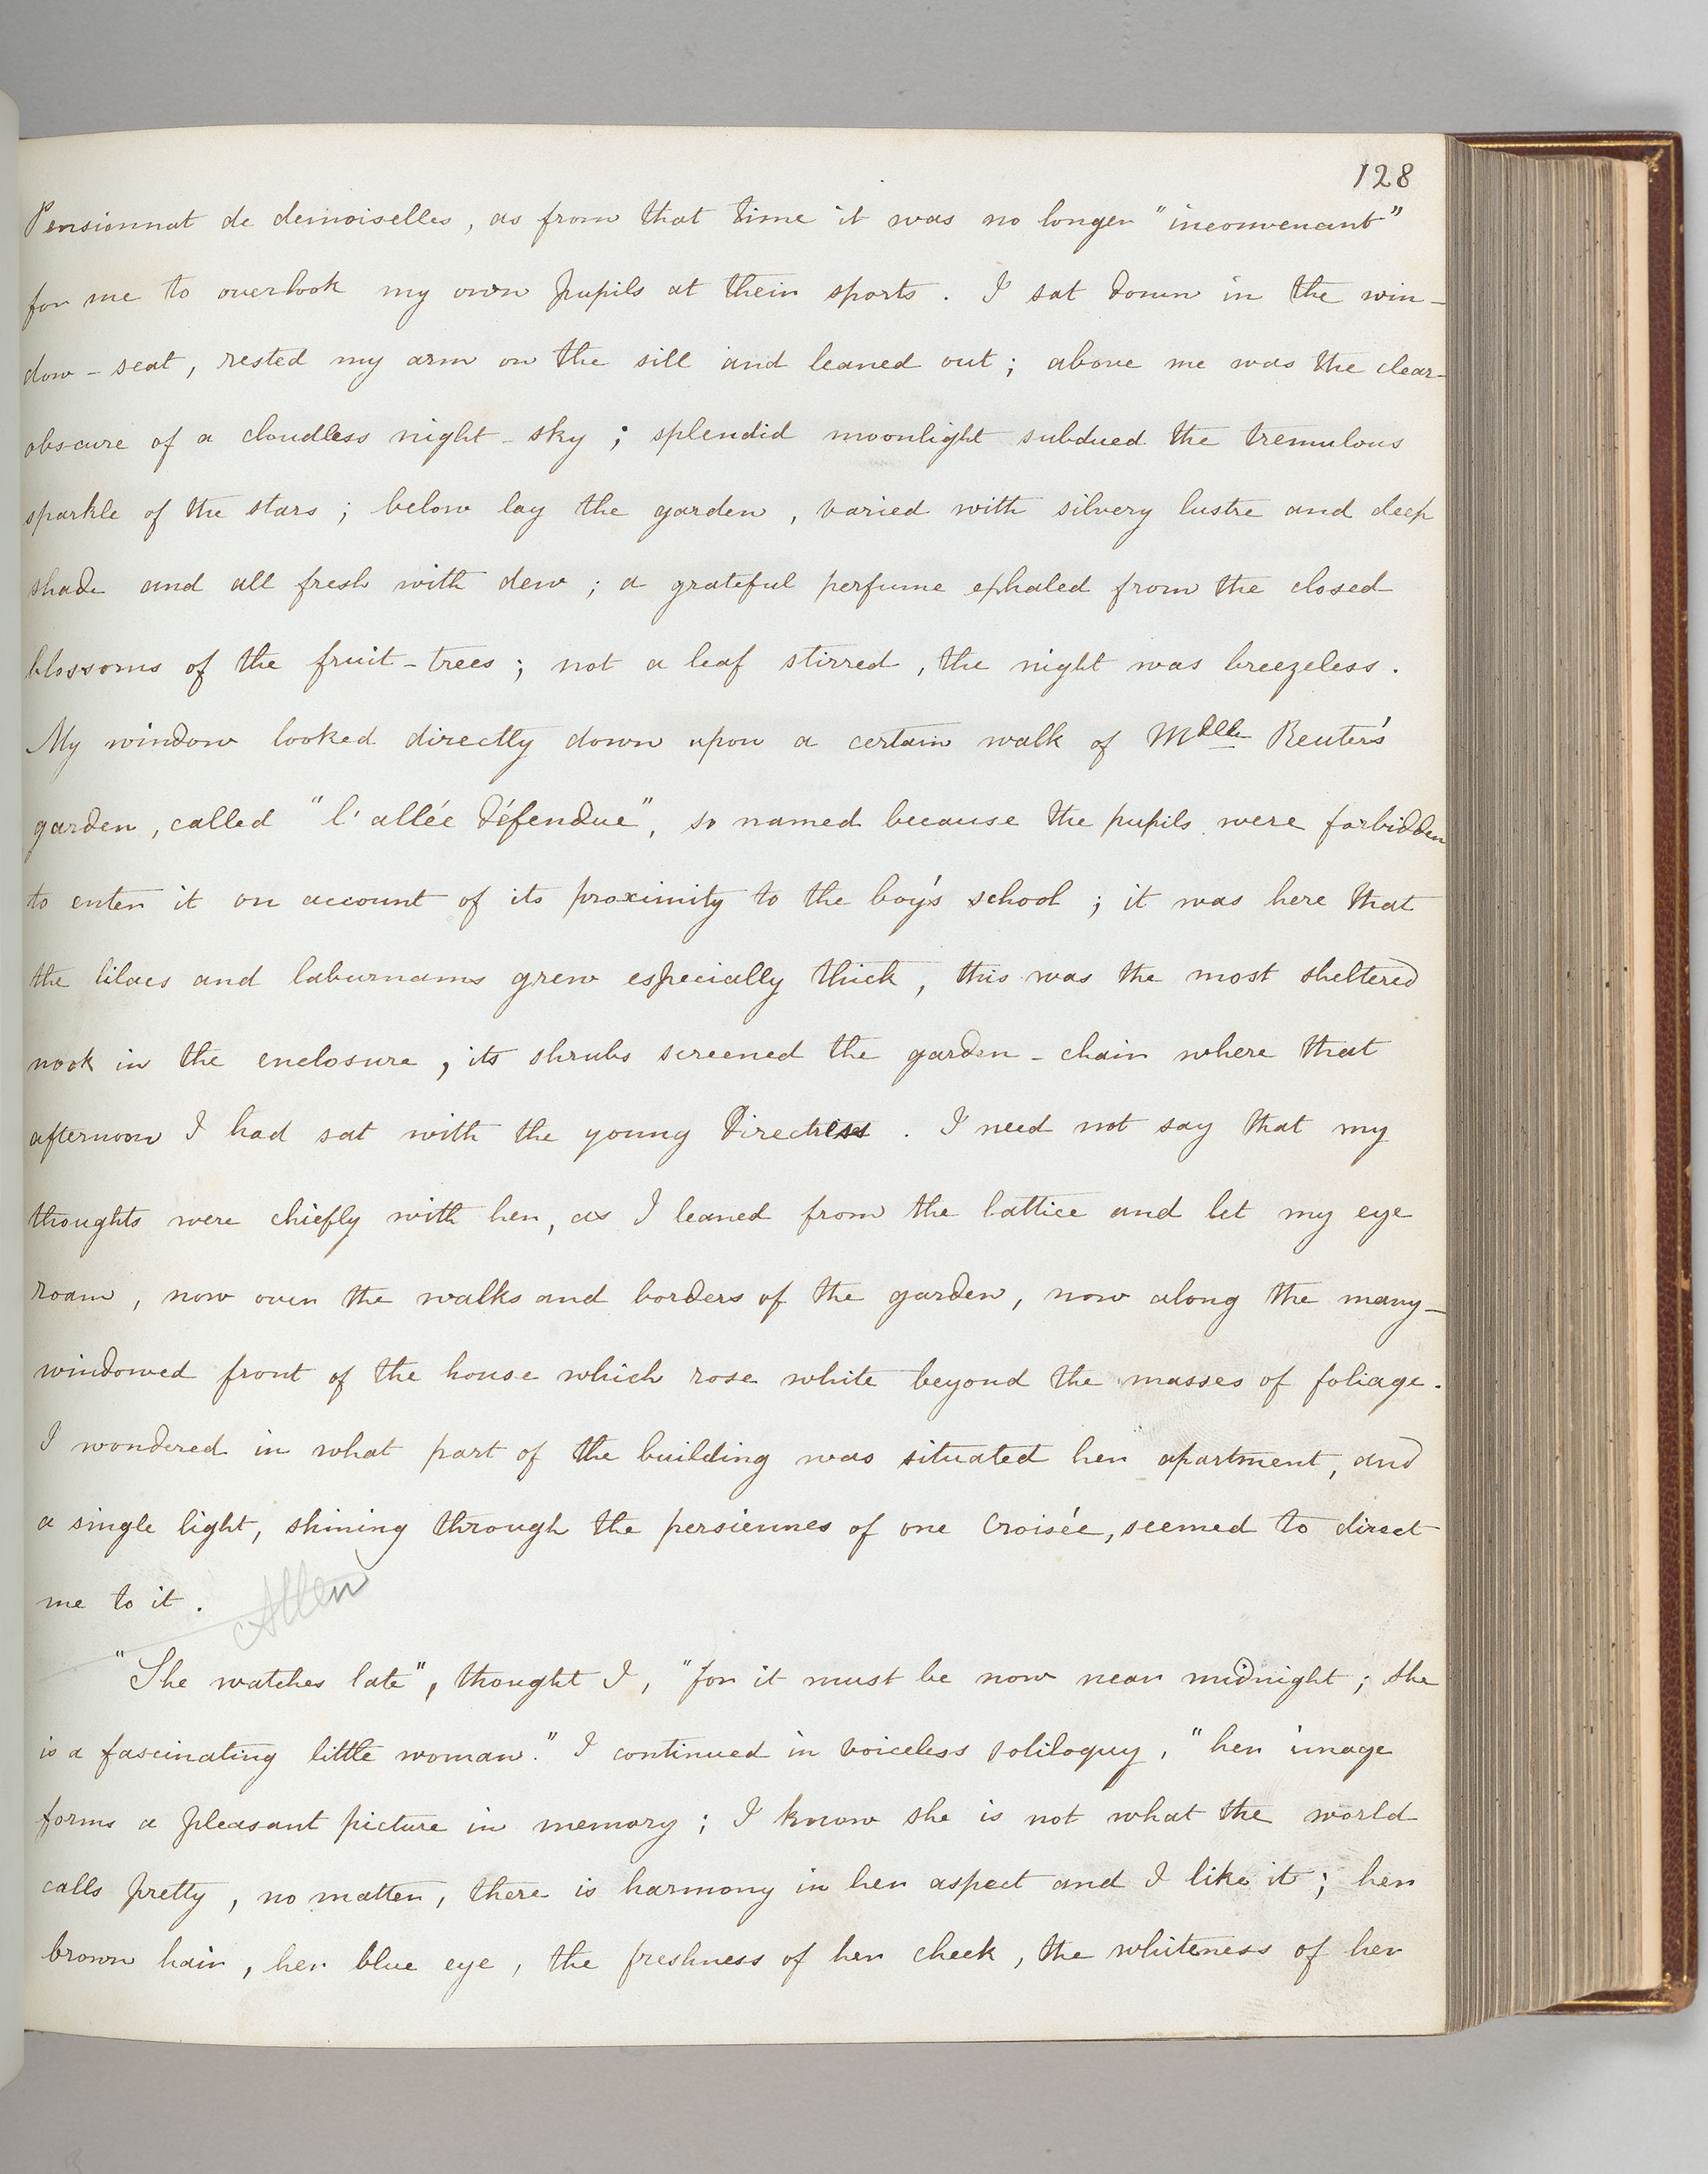 128
Pensionnat de demoiselles, as from that time it was no longer "inconvenant"
for me to overlook my own pupils at their sports. I sat down in the win-
dow-seat, rested my arm on the sill and leaned out; above me was the clear-
obscure of a cloudless night-sky; splendid moonlight subdued the tremulous
sparkle of the stars; below lay the garden, varied with silvery lustre and deep
shade and all fresh with dew; a grateful perfume exhaled from the closed
blossoms of the fruit-trees; not a leaf stirred, the night was breezeless.
My window looked directly down upon a certain walk of Mdlle Reuter's
garden, called "l'allée défendue", so named because the pupils were forbidden
to enter it on account of its proximity to the boy's school; it was here that
the lilacs and laburnams grew especially thick, this was the most sheltered
nook in the enclosure, its shrubs screened the garden-chair where that
afternoon I had sat with the young Directress. I need not say that my
thoughts were chiefly with her, as I leaned from the lattice and let my eye
roam, now over the walks and borders of the garden, now along the many-
windowed front of the house which rose white beyond the masses of foliage.
I wondered in what part of the building was situated her apartment, and
a single light, shining through the persiennes of one croisée, seemed to direct
me to it.
Allen
"She watches late", thought I, "for it must be now near midnight; she
is a fascinating little woman." I continued in voiceless soliloquy, "her image
forms a pleasant picture in memory; I know she is not what the world
calls pretty, no matter, there is harmony in her aspect and I like it; her
brown hair, her blue eye, the freshness of her cheek, the whiteness of her